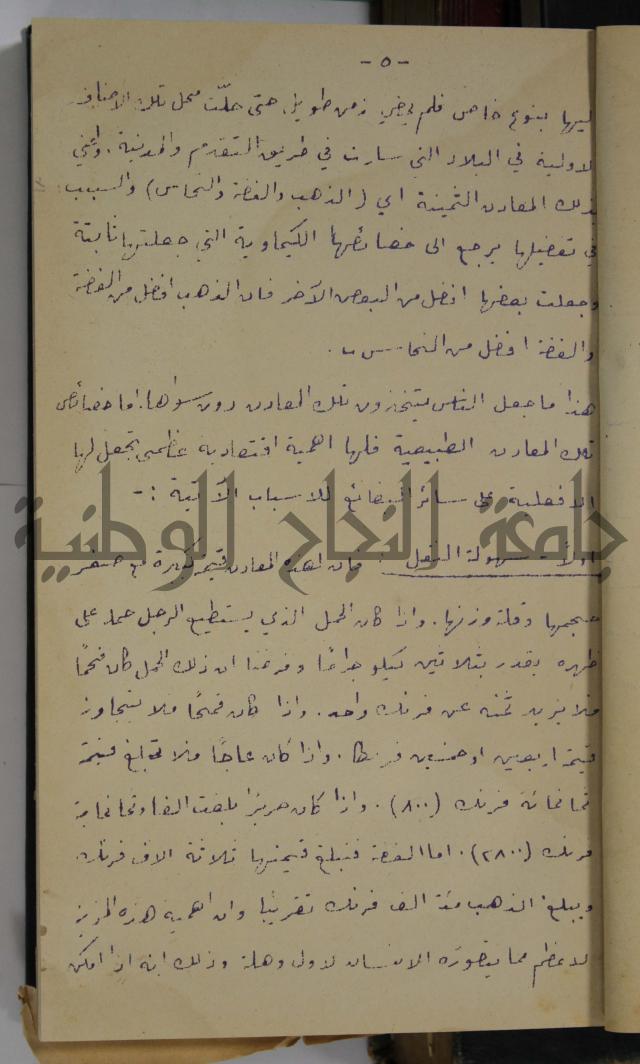 -٥-
اليها بنوع خاص فلم يمض زمن طويل حتى حلّت محل تلك الاصناف
الاولية في البلاد التي سارت في طريق التقدم والمدنية. واعني
بذلك المعادن الثمينة اي (الذهب والفضة والنحاس) والسبب
في تفضيلها يرجع الى خصائصها الكيماوية التي جعلتها ثابتة
وجعلت بعضها افضل من البعض الآخر فان الذهب افضل من الفضة
والفضة افضل من النحاس
هذا ما جعل الناس يتخذون تلك المعادن دون سواها. اما خصائص
تلك المعادن الطبيعية فلها اهمية اقتصادية عظمى تجعل لها
الافضلية على سائر البضائع للاسباب الآتية :-
اولاً- سهولة النقل : فان لهذه المعادن قيمة كبيرة مع صغر
حجمها وقلة وزنها. واذا كان الحمل الذي يستطيع الرجل حمله على
ظهره يقدر بثلاثين كيلو جرامًا وفرضنا ان ذلك الحمل كان فحمًا
فلا يزيد ثمنه عن فرنك واحد. واذا كان قمحًا فلا يتجاوز
قيمة اربعين او خمسين فرنكا. واذا كان عاجًا فلا تبلغ قيمة
ثمانمائة فرنك (٨٠٠). واذا كان حريرًا بلغت الفا وثمانماية
فرنك (٢٨٠٠). اما الفضة فتبلغ قيمتها ثلاثة الاف فرنك
ويبلغ الذهب مئة الف فرنك تقريبًا وان اهمية هذه المزية
لاعظم مما يتصوره الانسان لاول وهلة وذلك انه اذا امكن
جامعة النجاح الوطنية